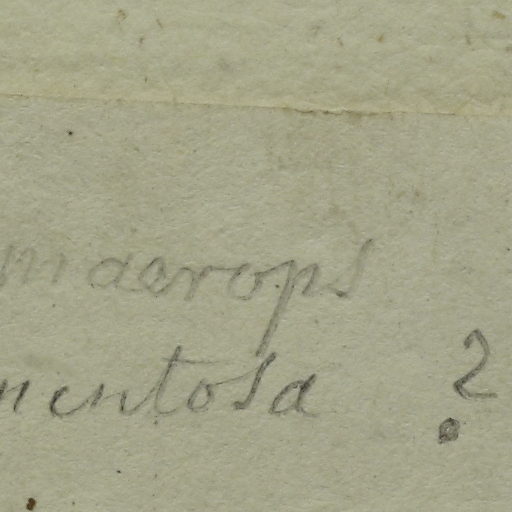 macrops
mentosa ?